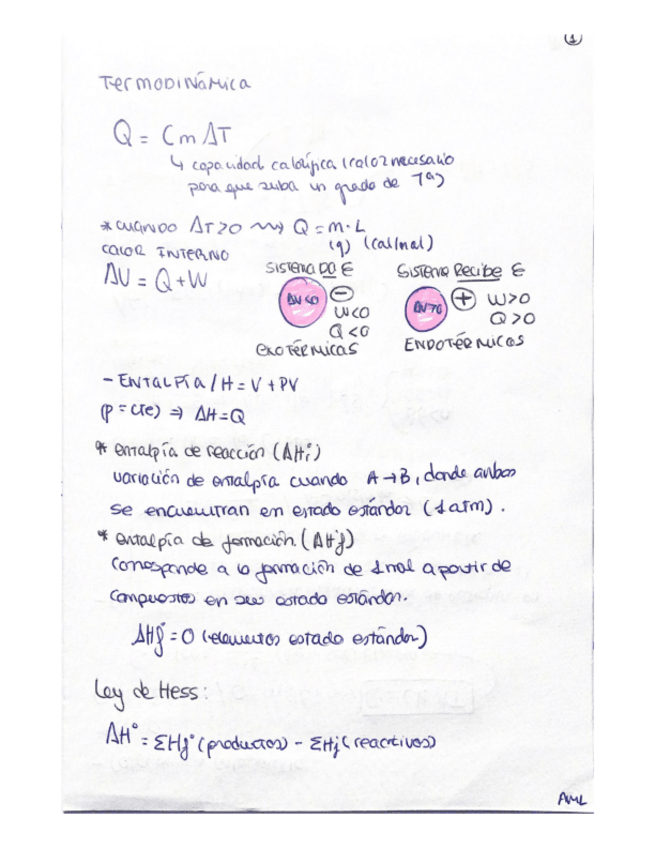 1
Termodinámica
Q = C m ΔT
↳ capacidad calorífica (calor necesario
para que suba un grado de Tª)
* CUANDO ΔT>0 ⇝ Q = m · L
(g) (cal/mol)
CALOR INTERNO
ΔU = Q + W
SISTEMA DA E
ΔU<0 ⊖ W<0
Q<0
EXOTÉRMICAS
SISTEMA Recibe E
ΔU>0 ⊕ W>0
Q>0
ENDOTÉRMICAS
- ENTALPÍA / H = V + PV
(p = cte) ⇒ ΔH = Q
* entalpía de reacción (ΔHr°)
variación de entalpía cuando A → B, donde ambos
se encuentran en estado estándar (1 atm).
* entalpía de formación (ΔH°f)
Corresponde a la formación de 1 mol a partir de
compuestos en su estado estándar.
ΔHf° = 0 (elementos estado estándar)
Ley de Hess:
ΔH° = ΣHf° (productos) - ΣHf (reactivos)
AML